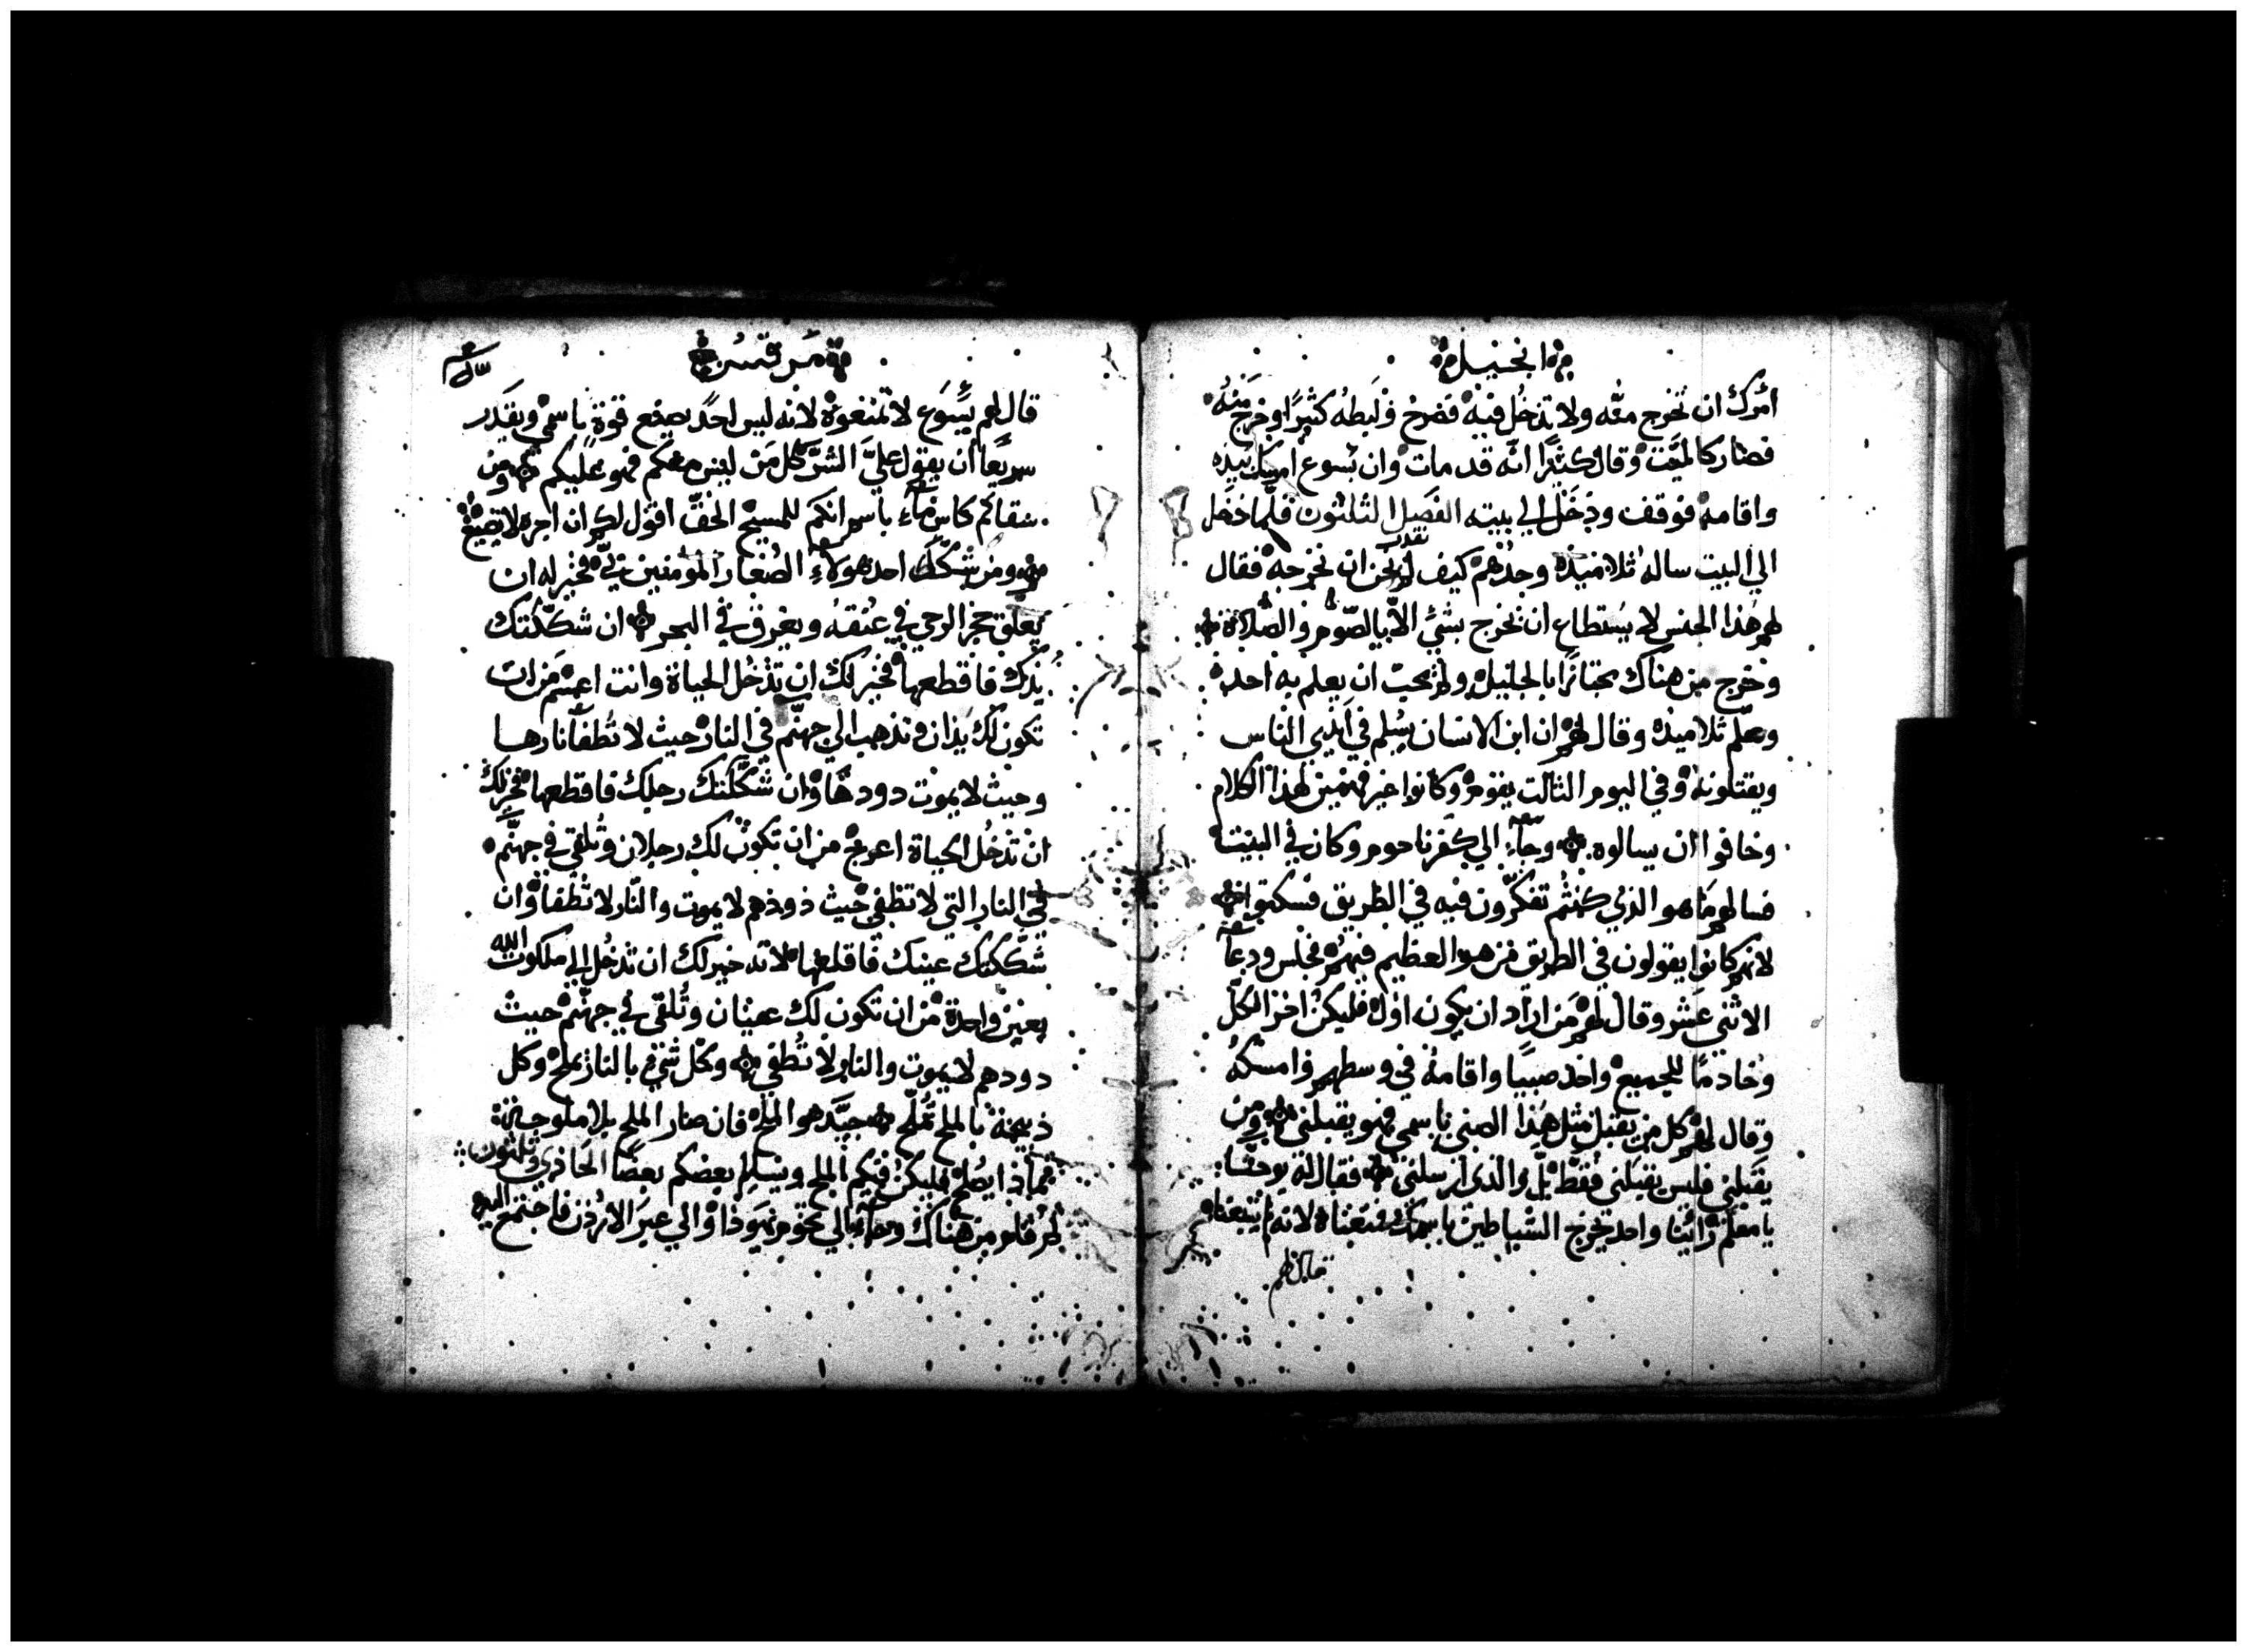 انجيل
امرك ان تخرج منه ولا تدخل فيه فصرخ ولبطه كثيرًا وخرج منه
فصار كالميت وقال كثيرًا انه قد مات وان يسوع امسك بيده
واقامه فوقف ودخل الي بيته الفصل الثلثون فلما دخل
الي البيت ساله تلاميذه وحدهم كيف لم نقدر نحن ان نخرجه فقال
لهم هذا الجنس لا يستطاع ان نخرج بشئ الا بالصوم والصلاة
وخرج من هناك مجتازًا بالجليل ولم يحب ان يعلم به احد
وعلم تلاميذه وقال لهم ان ابن الانسان يسلم في ايدي الناس
ويقتلونه وفي اليوم الثالت يقوم وكانوا غير فهمين لهذا الكلام
وخافوا ان يسالوه وجاء الي كفرناحوم وكان في البيت
فسالهم ما هو الذي كنتم تفكرون فيه في الطريق فسكتوا
لانهم كانوا يقولون في الطريق من هو العظيم فيهم فجلس ودعا
الاثني عشر وقال لهم من اراد ان يكون اول فليكن اخر الكل
وخادمًا للجميع واخذ صبيا واقامه في وسطهم وامسكه
وقال لهم كل من يقبل مثل هذا الصبي باسمي فهو يقبلني ومن
يقبلني فليس يقبلني فقط بل والذي ارسلني فقال له يوحنا
يا معلم راينا واحد يخرج الشياطين باسمك فمنعناه لانه لم يتبعنا
قال لهم
مرقس
قال لهم يسوع لا تمنعوه لانه ليس احد يصنع قوة باسمي ويقدر
سريعًا ان يقول علي الشر كل من ليس معكم فهو عليكم ومن
سقاكم كاس ماء باسم انكم للمسيح الحق اقول لكم ان اجره لا يضيع
ومن شكك احد هولاء الصغار المومنين بي فخير له ان
يعلق حجر الرحي في عنقه ويغرق في البحر ان شككتك
يدك فاقطعها فخير لك ان تدخل الحياة وانت اعسم من ان
تكون لك يدان وتذهب الي جهنم في النار حيث لا تطفا نارها
وحيث لا يموت دودها وان شككتك رجلك فاقطعها فخير لك
ان تدخل الحياة اعرج من ان تكون لك رجلان وتلقي في جهنم
في النار التي لا تطفي حيث دودهم لا يموت والنار لا تطفا وان
شككتك عينك فاقلعها لانه خير لك ان تدخل الي ملكوت الله
بعين واحدة من ان تكون لك عينان وتلقي في جهنم حيث
دودهم لا يموت والنار لا تطفي وكل شي بالنار يملح وكل
ذبيحة بالملح تملح جيد هو الملح فان صار الملح بلا ملوحة
فبماذا يصلح فليكن فيكم الملح ويسلم بعضكم بعضًا الحادي وثلثون
ثم قام من هناك وجاء الي تخوم يهوذا والي عبر الاردن فاجتمع اليه